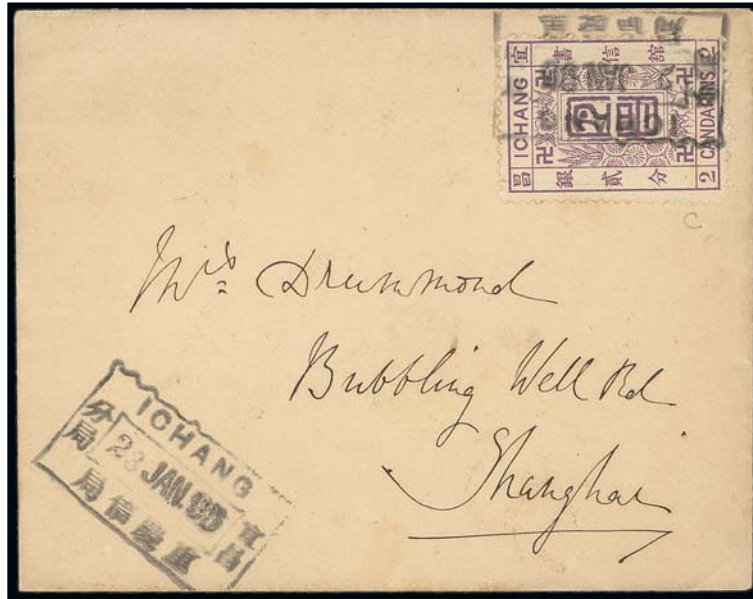 宜 書 信 館 2
ICHANG
CANDARINS
昌 銀 貳 分 2
Mrs Drummond
Bubbling Well Rd
Shanghai
ICHANG
分局
JAN. 95
宜昌
重慶信局